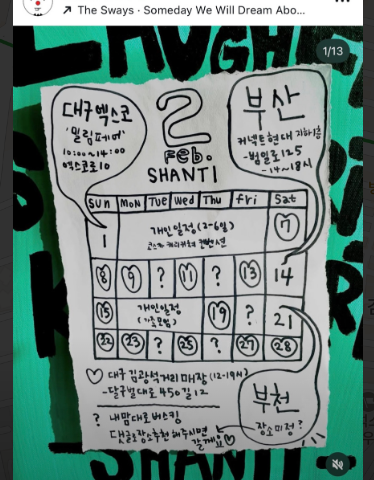 The Sways · Someday We Will Dream Abo...
1/13
대구엑스코
'밀림페어'
10:00~14:00
엑스코로10
2
Feb.
SHANTI
부산
커넥트현대 지하1층
-범일로125
-14~18시
Sun Mon Tue Wed Thu Fri Sat
1 개인일정 (2-6일) 7
8 9 ? 11 ? 13 14
15 개인일정 19 ? 21
22 23 ? 25 ? 27 28
♡ 대구 김광석거리 매장 (12-19시)
-달구벌대로 450길 12
? 내맘대로 버스킹
댓글로 장소추천 해주시면
갈게요♡
부천
장소미정?
SHANTI